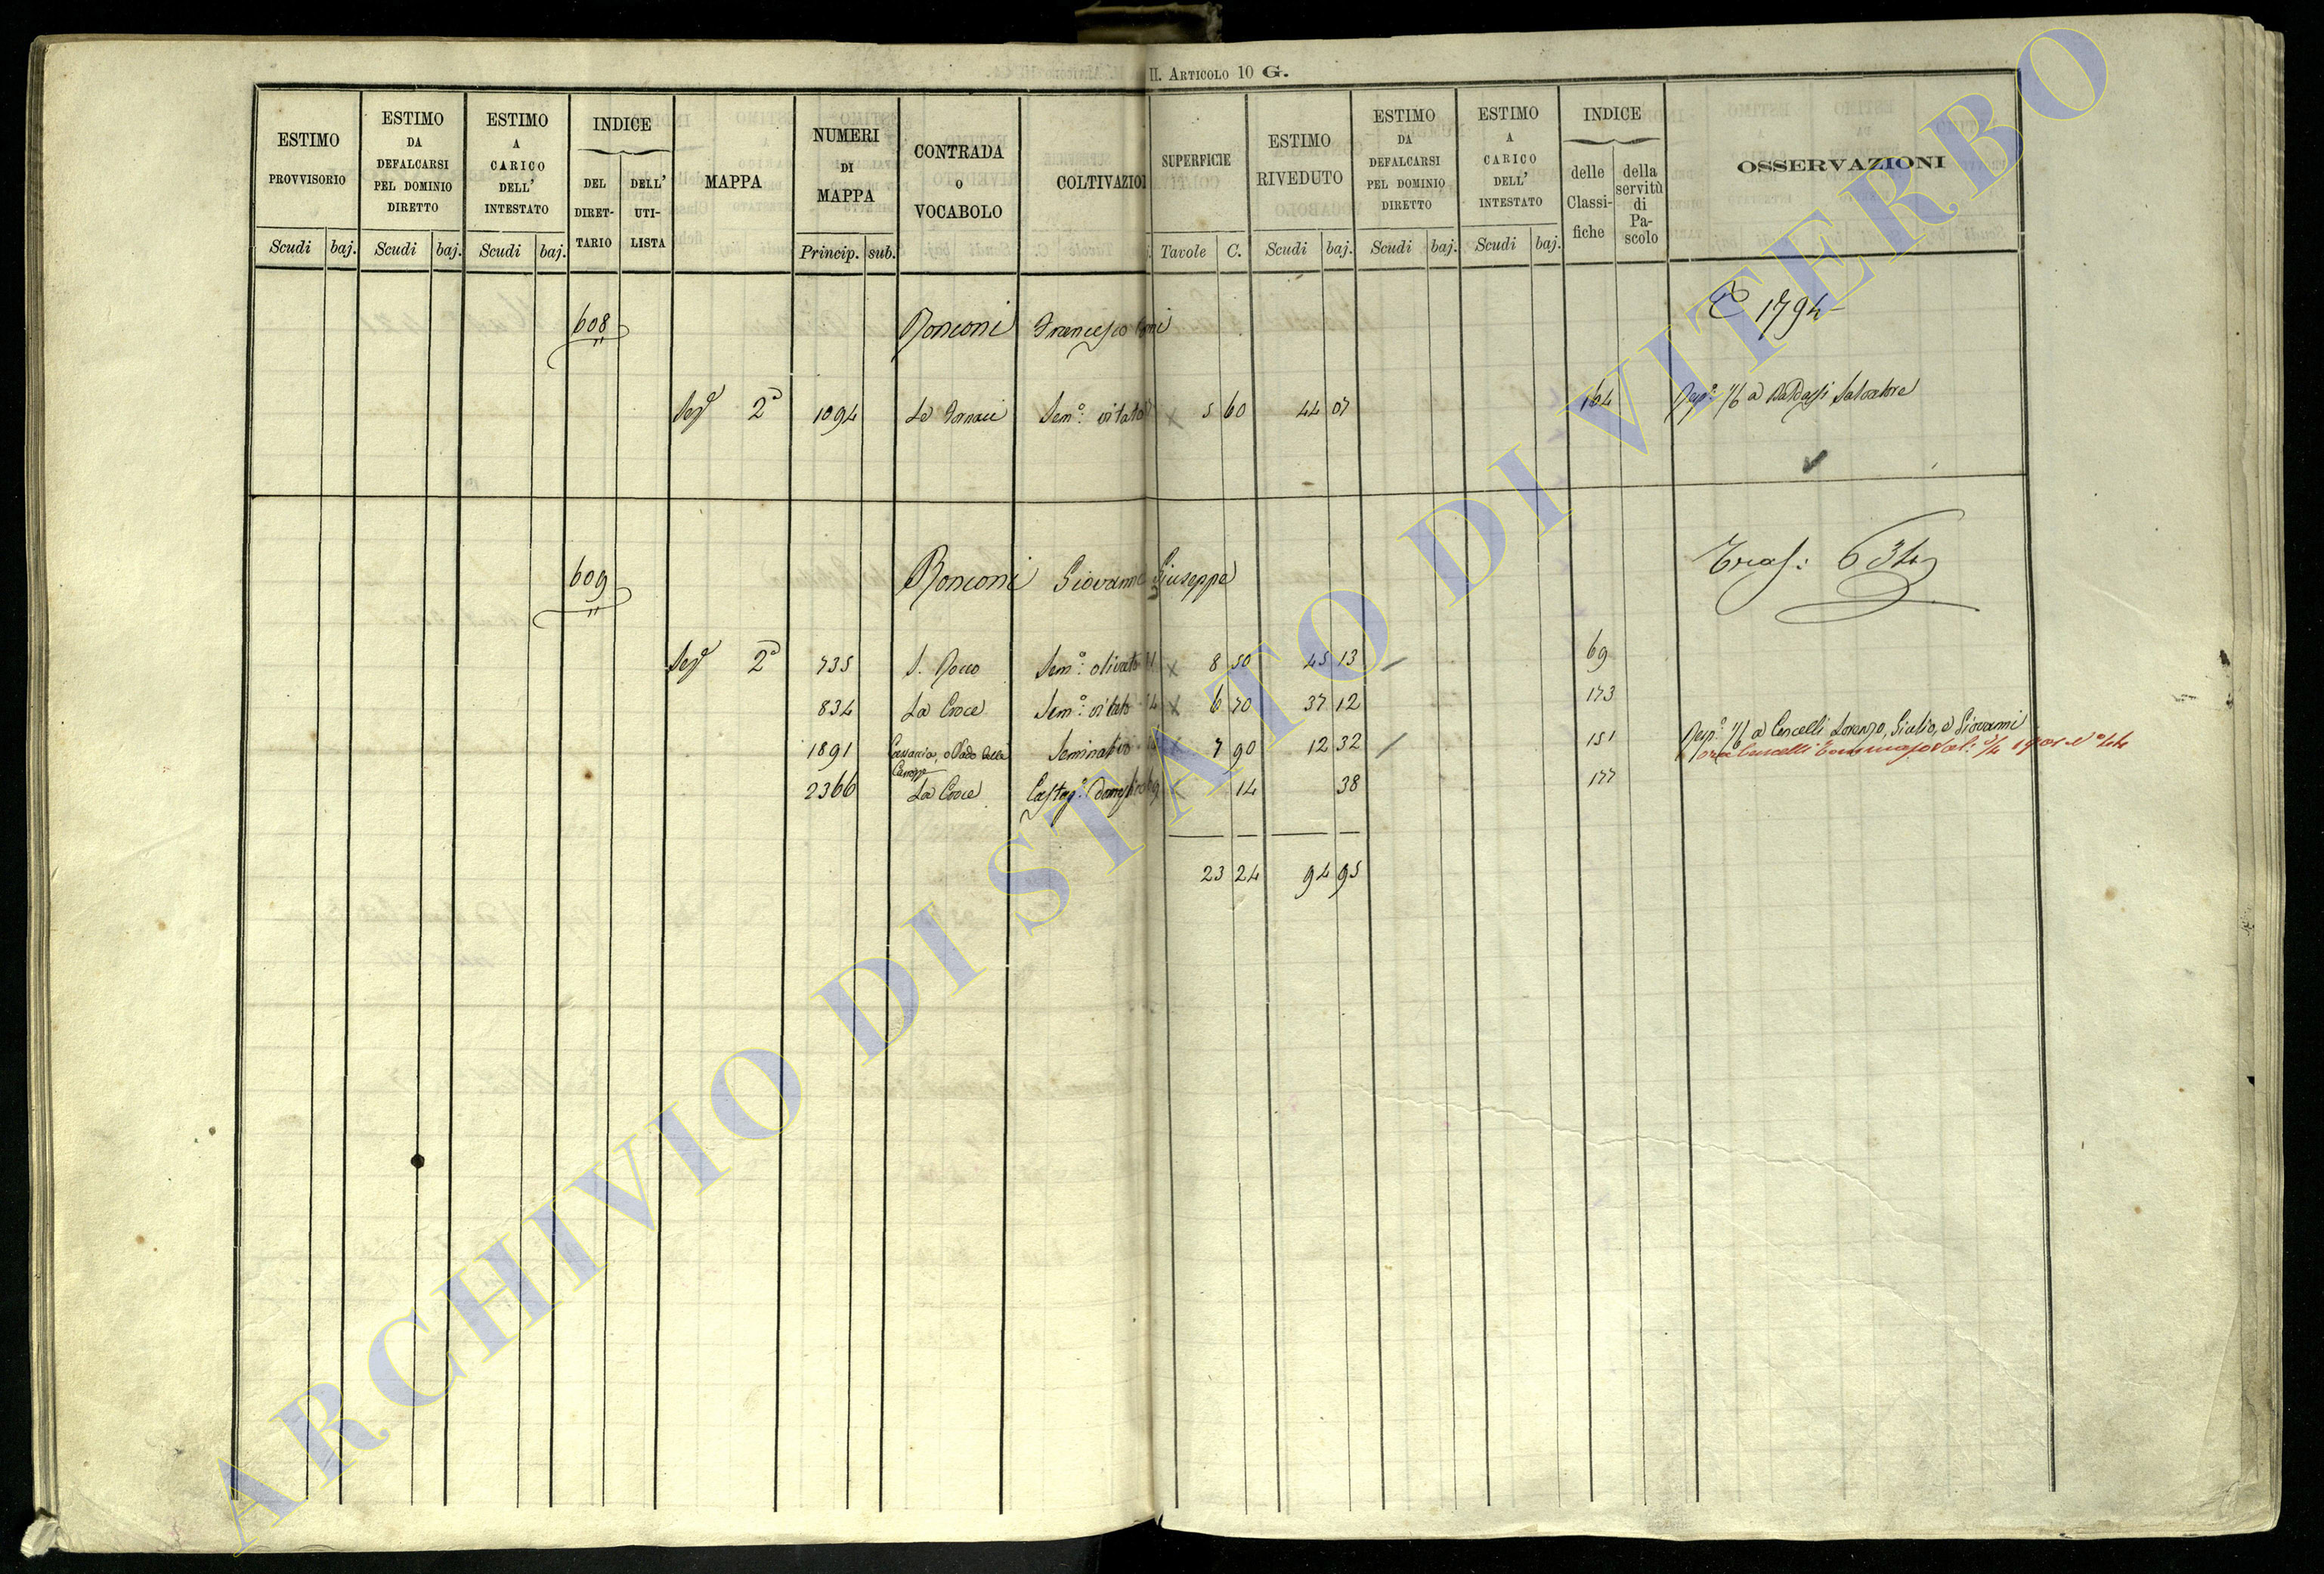 II. Articolo 10 G.
ESTIMO PROVVISORIO
ESTIMO DA DEFALCARSI PEL DOMINIO DIRETTO
ESTIMO A CARICO DELL' INTESTATO
INDICE
DEL DIRET-TARIO
DELL' UTI-LISTA
MAPPA
NUMERI DI MAPPA
CONTRADA O VOCABOLO
COLTIVAZIO
SUPERFICIE
ESTIMO RIVEDUTO
ESTIMO DA DEFALCARSI PEL DOMINIO DIRETTO
ESTIMO A CARICO DELL' INTESTATO
INDICE
delle Classi-fiche
della servitù di Pa-scolo
OSSERVAZIONI
Scudi baj. Scudi baj. Scudi baj. Princip. sub. Tavole C. Scudi baj. Scudi baj. Scudi baj.
608 Ronconi Francesco 1794
Sez.e 2a 1094 Le Fornaci Sem.o vitato 5 60 44 07 164 Risp.o 1/6 a Baldassi Salvatore
609 Ronconi Giovanni Giuseppe Tras: 634
Sez.e 2a 735 S. Rocco Sem.o olivato 8 50 45 13 69
834 La Croce Sem.o vitato 6 70 37 12 173
1891 Seminativo 7 90 12 32 151 Risp.o 1/6 a Cencelli Lorenzo, Giulio, e Giovanni
Cencelli Tommaso 1901 No 44
2366 La Croce Castag.o 14 38 177
23 24 94 95
ARCHIVIO DI STATO DI VITERBO